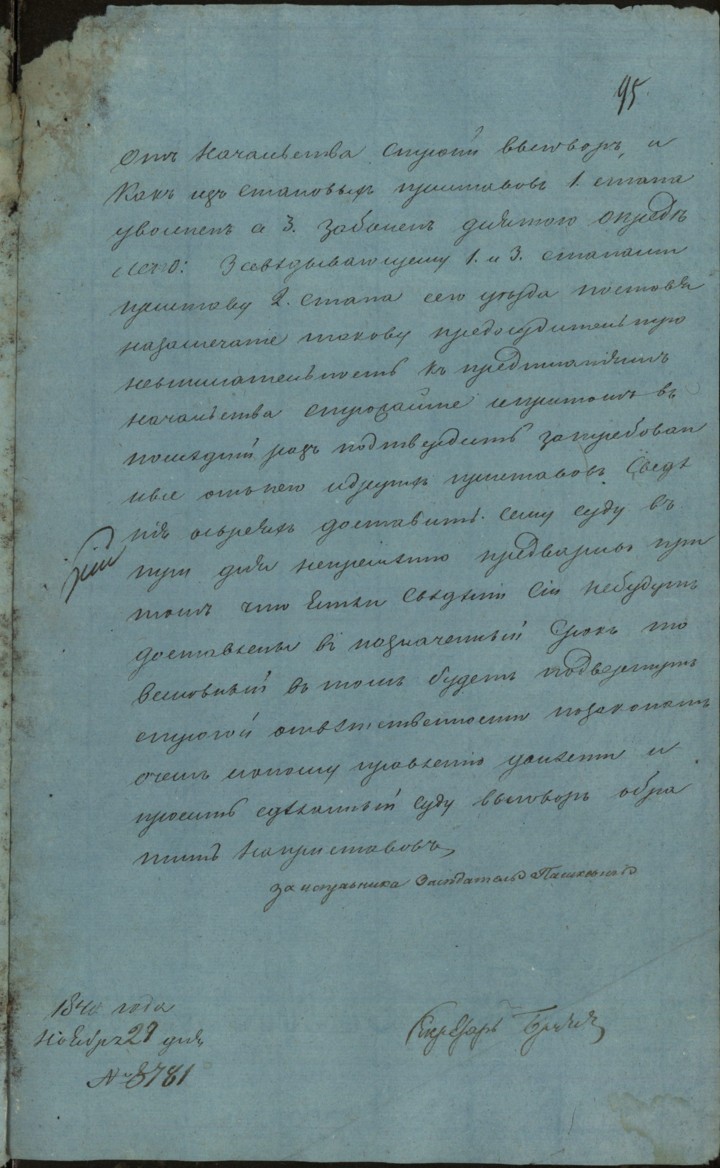 95
отъ Начальства строгій выговоръ, и
Какъ изъ становыхъ приставовъ 1. стана
уволенъ а 3. заболенъ опредѣ
лено: Завѣдывающему 1. и 3. станами
приставу 2. стана сего уѣзда поставя
назамѣчаніе такову предосудительную
невнимательность къ предписаніямъ
начальства строжайше ипритомъ въ
послѣдній разъ подтвердить затребован
ные отънего идругихъ приставовъ Свѣдѣ
нія доставить сему суду въ
три дня непремѣнно предваривъ при
томъ что Ежели Свѣдѣнія Сіи небудутъ
доставлены въ назначенный Срокъ то
Виновный въ томъ будетъ подвергнутъ
строгой отвѣтственности позаконамъ
о чемъ правленію донести и
просить сдѣланный Суду выговоръ обра
тить Наприставовъ
За исправника Засѣдатель
1840 года
Ноября 29 дня
№ 8781
Секретарь